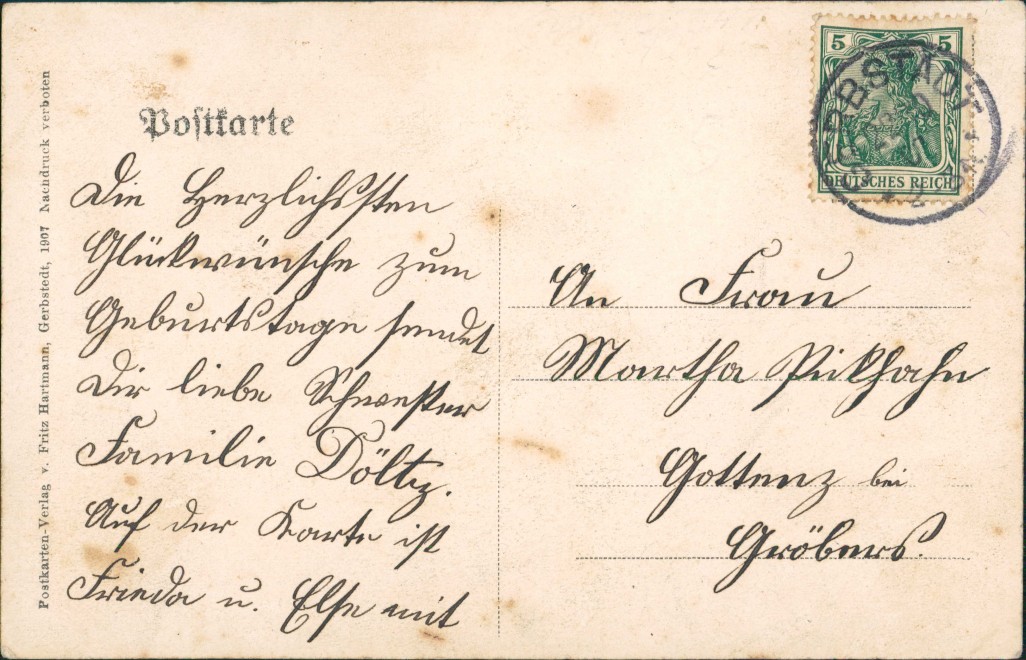 Postkarte
Die Herzlichssten
Glückwünsche zum
Geburtstage sendet
Dir liebe Schwester
Familie Döltz.
Auf der Karte ist
Frieda u. Else mit
An Frau
Martha Pickhahn
Gottenz bei
Gröbers.
5 5
DEUTSCHES REICH
Postkarten-Verlag v. Fritz Hartmann, Gerbstedt, 1907 Nachdruck verboten